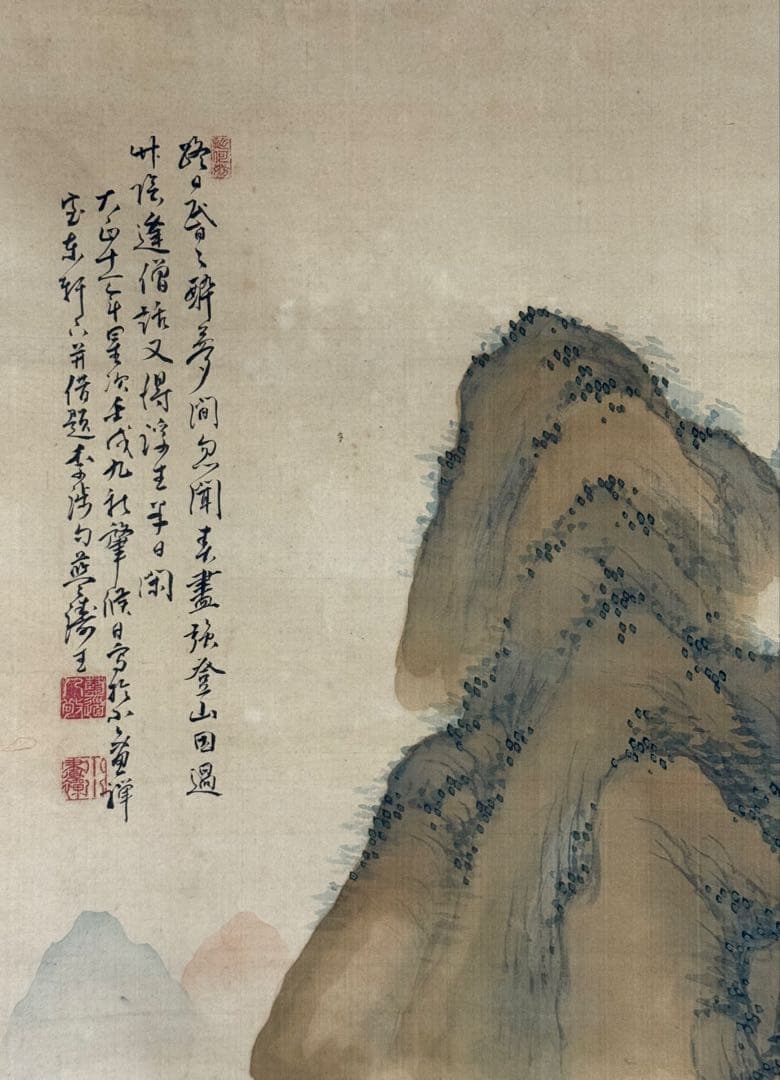 終日昏々醉夢間忽聞春盡強登山因過
竹院逢僧話又得浮生半日閑
大正十一年星次壬戌九秋肇候日寫於小画禅
室東軒下并借題李渉句